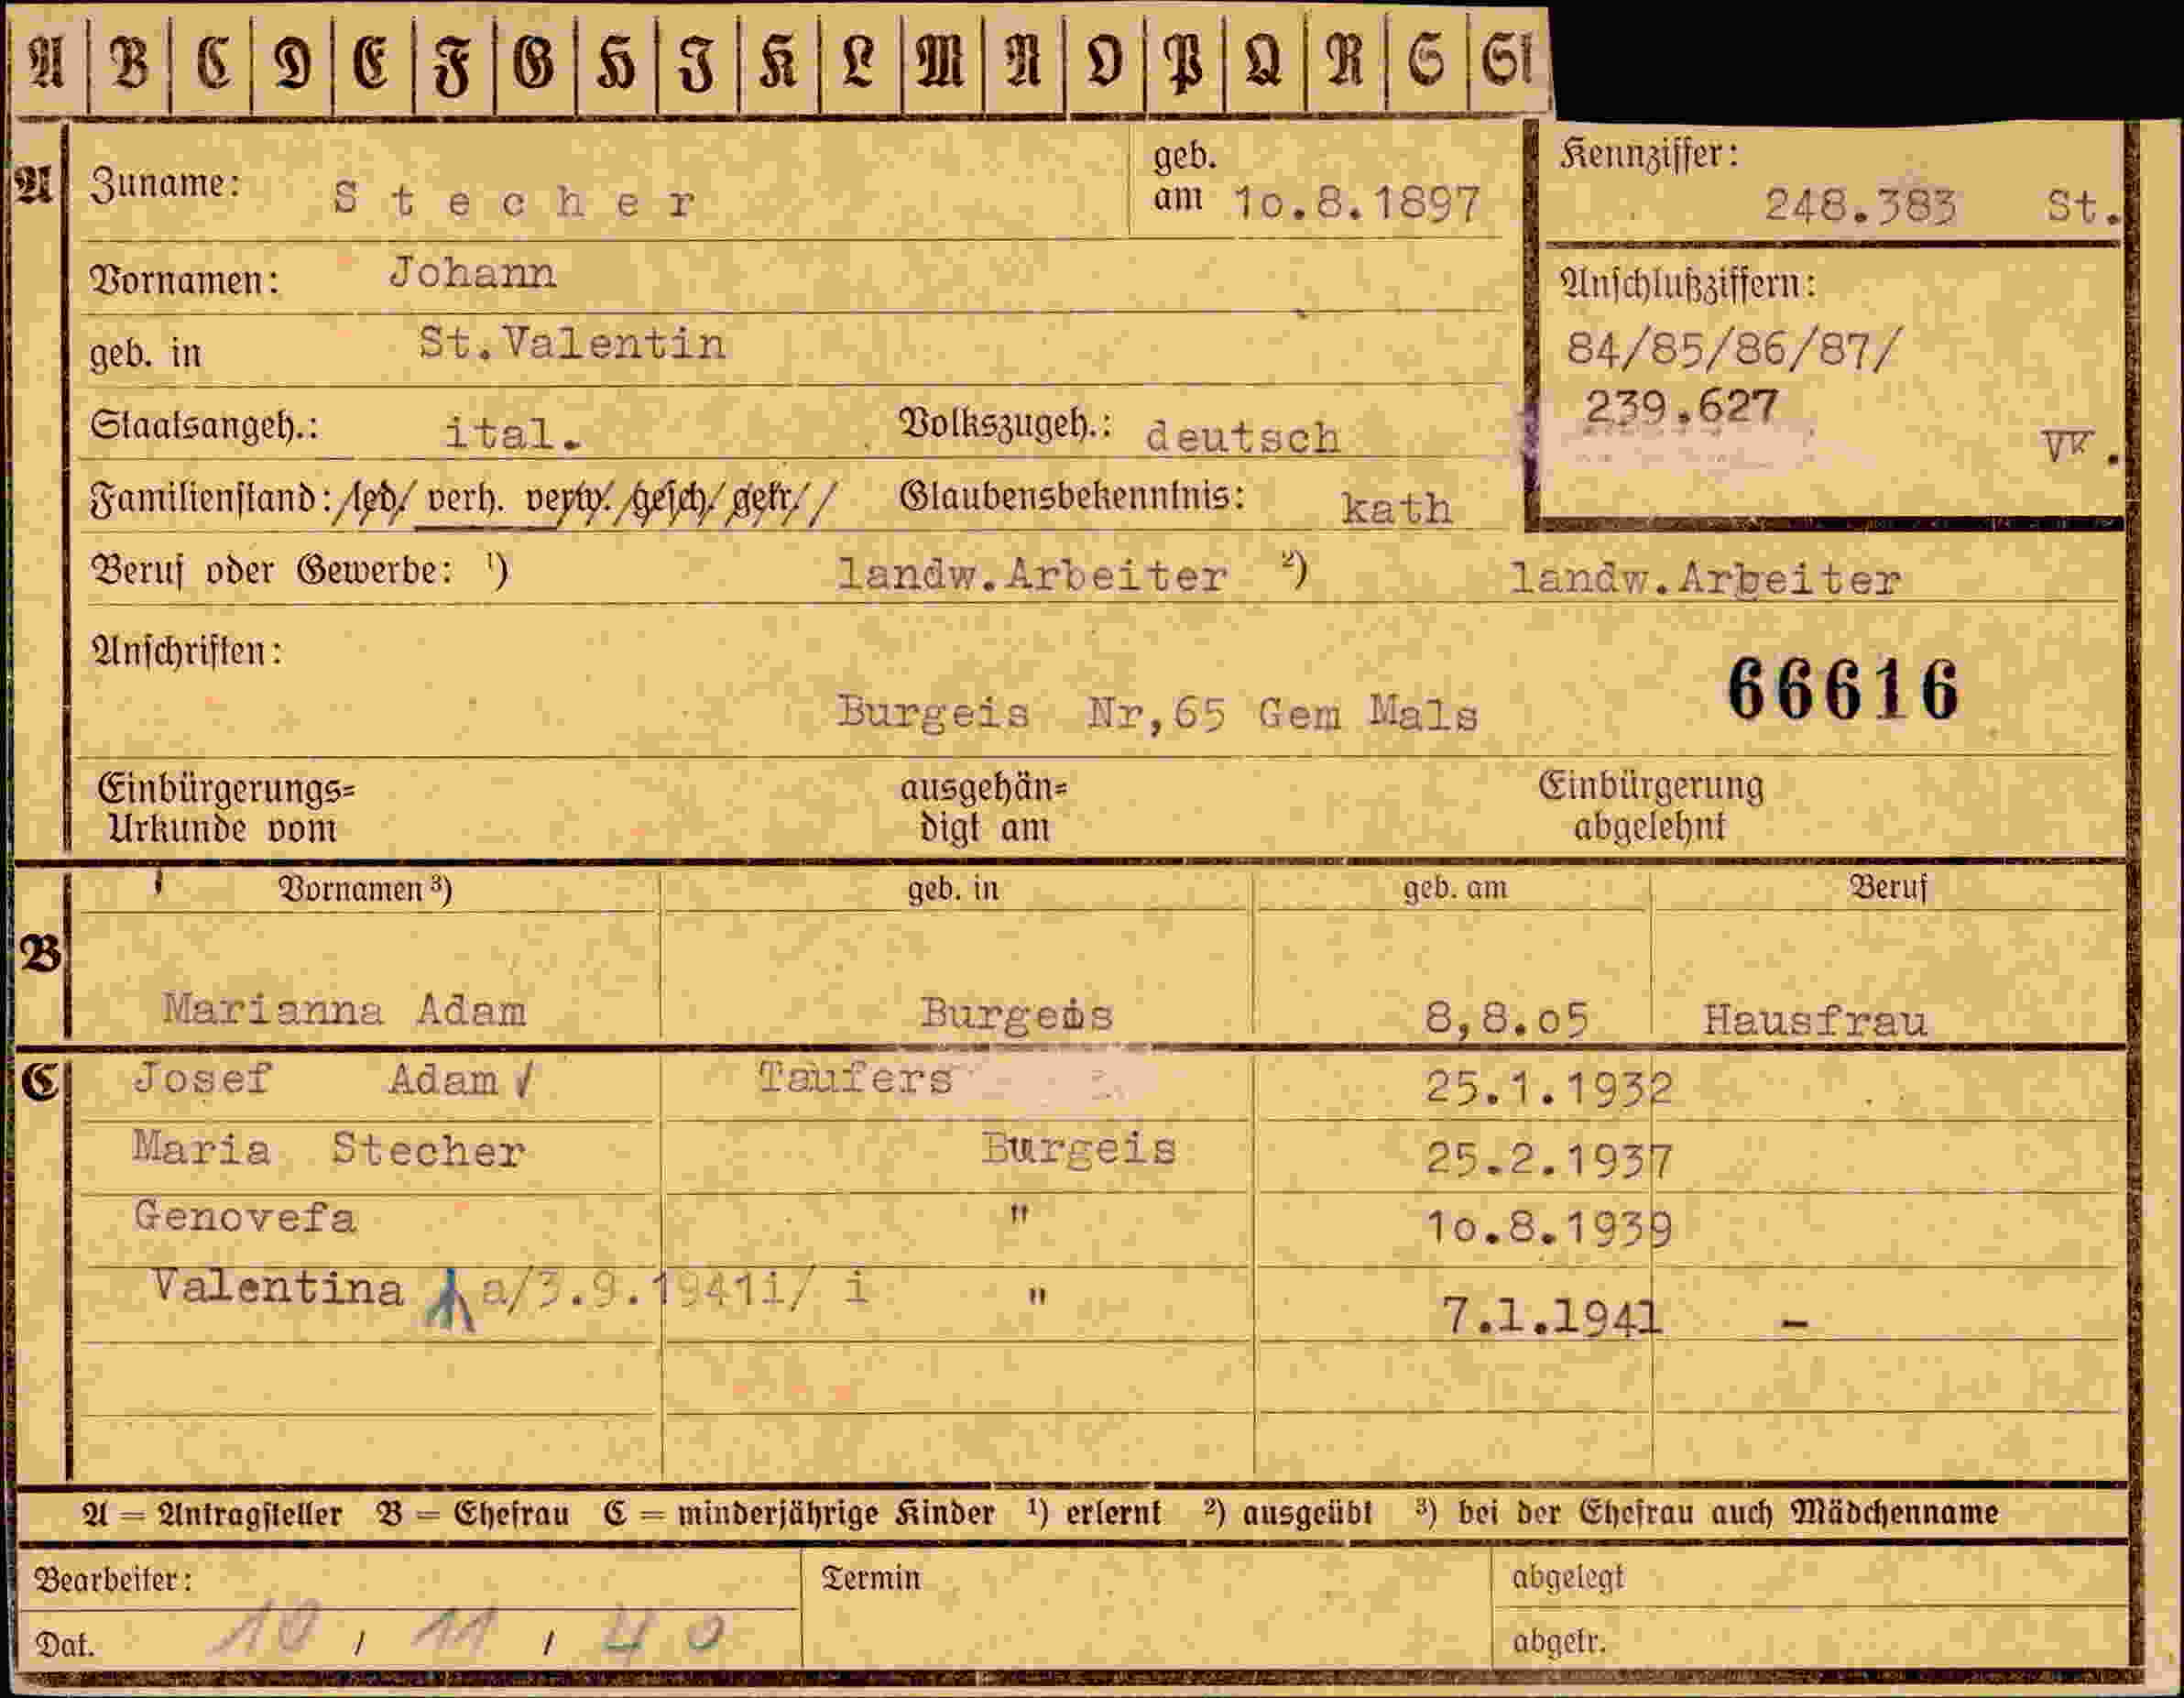 A B C D E F G H I K L M N O P Q R S St
A Zuname: Stecher geb. am 1o.8.1897 Kennziffer: 248.383 St.
Vornamen: Johann Anschlußziffern:
geb. in St.Valentin 84/85/86/87/
239.627
Staatsangeh.: ital. Volkszugeh.: deutsch VK.
Familienstand: led. verh. verw. gesch. getr. Glaubensbekenntnis: kath
Beruf oder Gewerbe: ¹) landw.Arbeiter ²) landw.Arbeiter
Anschriften:
66616
Burgeis Nr,65 Gem Mals
Einbürgerungs= ausgehän= Einbürgerung
Urkunde vom digt am abgelehnt
Vornamen ³) geb. in geb. am Beruf
B
Marianna Adam Burgeis 8,8.o5 Hausfrau
C Josef Adam / Taufers 25.1.1932
Maria Stecher Burgeis 25.2.1937
Genovefa " 1o.8.1939
Valentina a/3.9.1941i/ i " 7.1.1941 -
A = Antragsteller B = Ehefrau C = minderjährige Kinder ¹) erlernt ²) ausgeübt ³) bei der Ehefrau auch Mädchenname
Bearbeiter: Termin abgelegt
Dat. 10 / 11 / 40 abgetr.